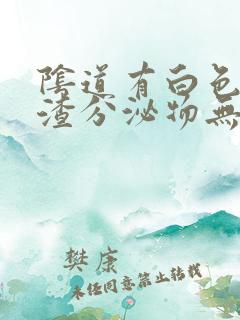 陰道有白色
渣分泌物無
樊康
未经同意禁止转载